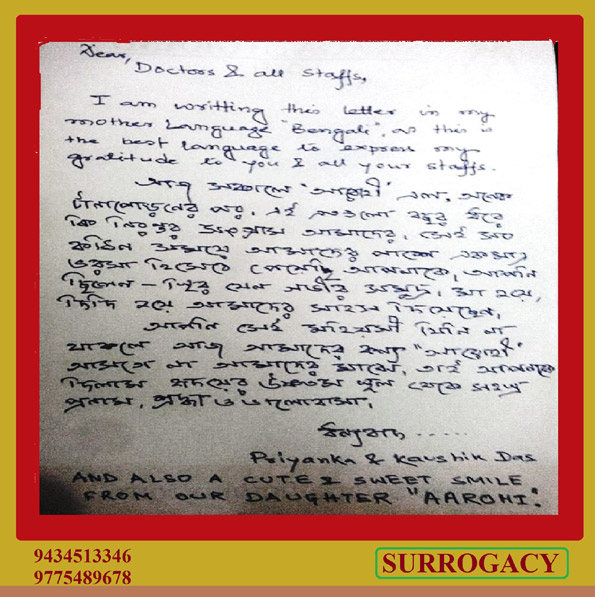 Dear,
Doctors & all Staffs,
I am writting this letter in my
mother Language "Bengali", as this is
the best language to express my
gratitude to you & all your staffs.
আজ সকালে "আরোহী" এল, অনেক
টানাপোড়েনের পর, এই এতগুলো বছর ধরে
কি নিরন্তর আমাদের, সেই সব
কঠিন সময়ে আমাদের পাশে একমাত্র
ভরসা হিসেবে পেয়েছি আপনাকে, আপনি
ছিলেন – স্থির যেন গভীর সমুদ্র, মা হয়ে,
দিদি হয়ে আমাদের সাহস দিয়েছেন,
আপনি সেই মহিয়সী যিনি না
থাকলে আজ আমাদের "আরোহী"
আসতো না আমাদের মাঝে, তাই আপনাকে
দিলাম হৃদয়ের থেকে সহস্র
প্রনাম, শ্রদ্ধা ও ভালোবাসা,
ধন্যবাদ .....
Priyanka & Kaushik Das
AND ALSO A CUTE & SWEET SMILE
FROM OUR DAUGHTER "AAROHI".
9434513346
9775489678
SURROGACY